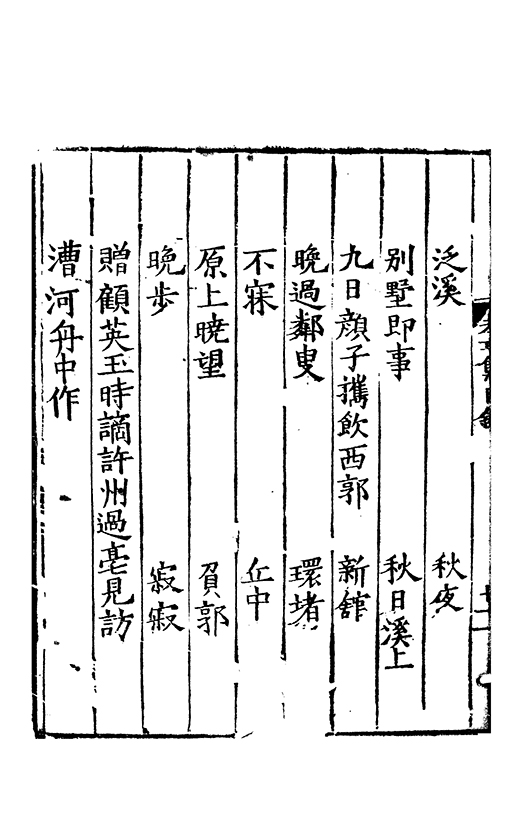 泛溪　秋夜
别墅即事　秋日溪上
九日顔子攜飲西郭　新舘
晚過鄰叟　環堵
不寐　丘中
原上曉望　負郭
晚步　寂寂
贈顧英玉時謫許州過亳見訪
漕河舟中作